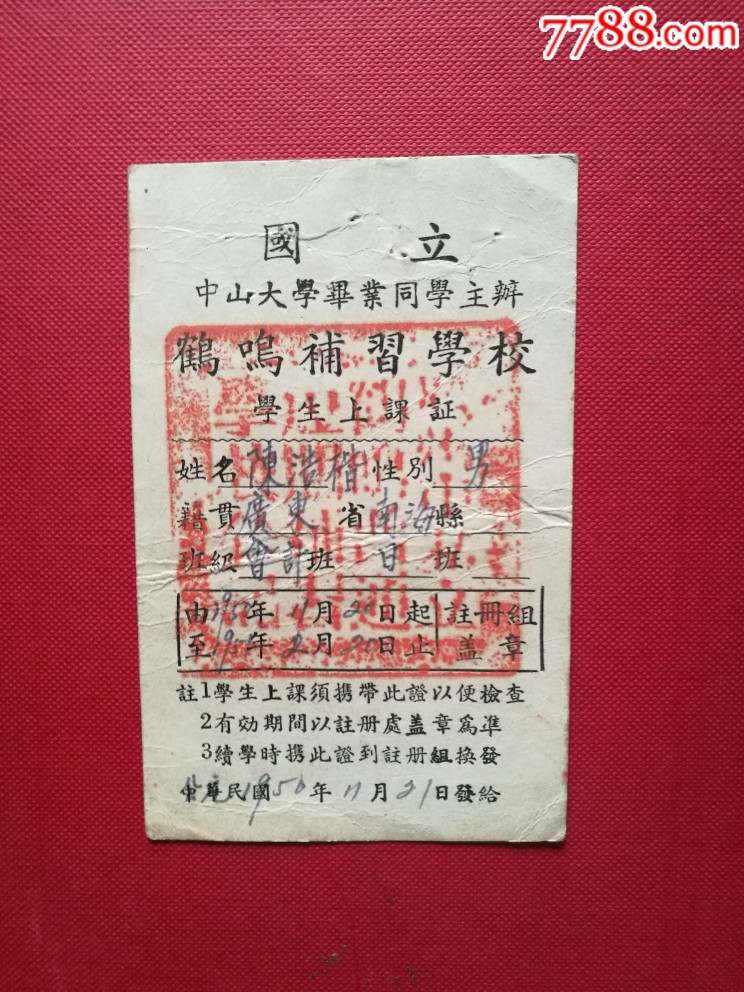 7788.com
國立
中山大學畢業同學主辦
鶴鳴補習學校
學生上課証
姓名 陳浩楷 性別 男
籍貫 廣東 省 南海 縣
班級 會計 班 日 班
由1950年11月20日起 註冊組
至195年2月20日止 盖章
註1學生上課須携帶此證以便檢查
2有効期間以註册處盖章為準
3續學時携此證到註册組換發
中華民國1950年11月21日發給